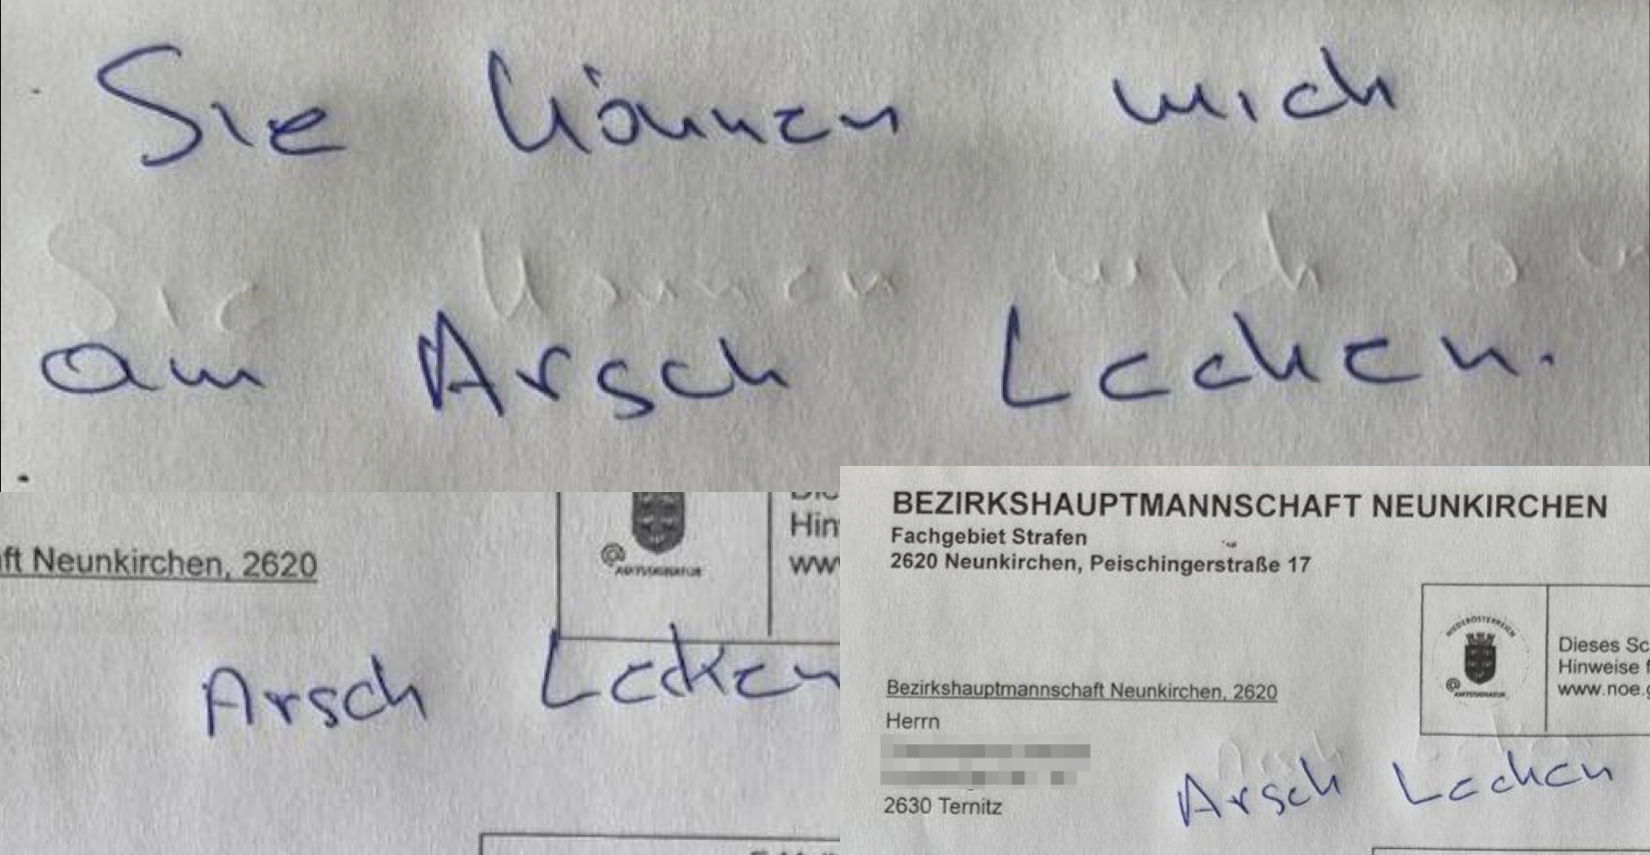 Sie können mich
Sie können mich an
am Arsch Lecken.
ft Neunkirchen, 2620
@
AMTSSIGNATUR
Hin
ww
Arsch Lecken
BEZIRKSHAUPTMANNSCHAFT NEUNKIRCHEN
Fachgebiet Strafen
2620 Neunkirchen, Peischingerstraße 17
NIEDERÖSTERREICH
@
AMTSSIGNATUR
Dieses Sc
Hinweise f
www.noe.g
Bezirkshauptmannschaft Neunkirchen, 2620
Herrn
2630 Ternitz
Arsch Lecken